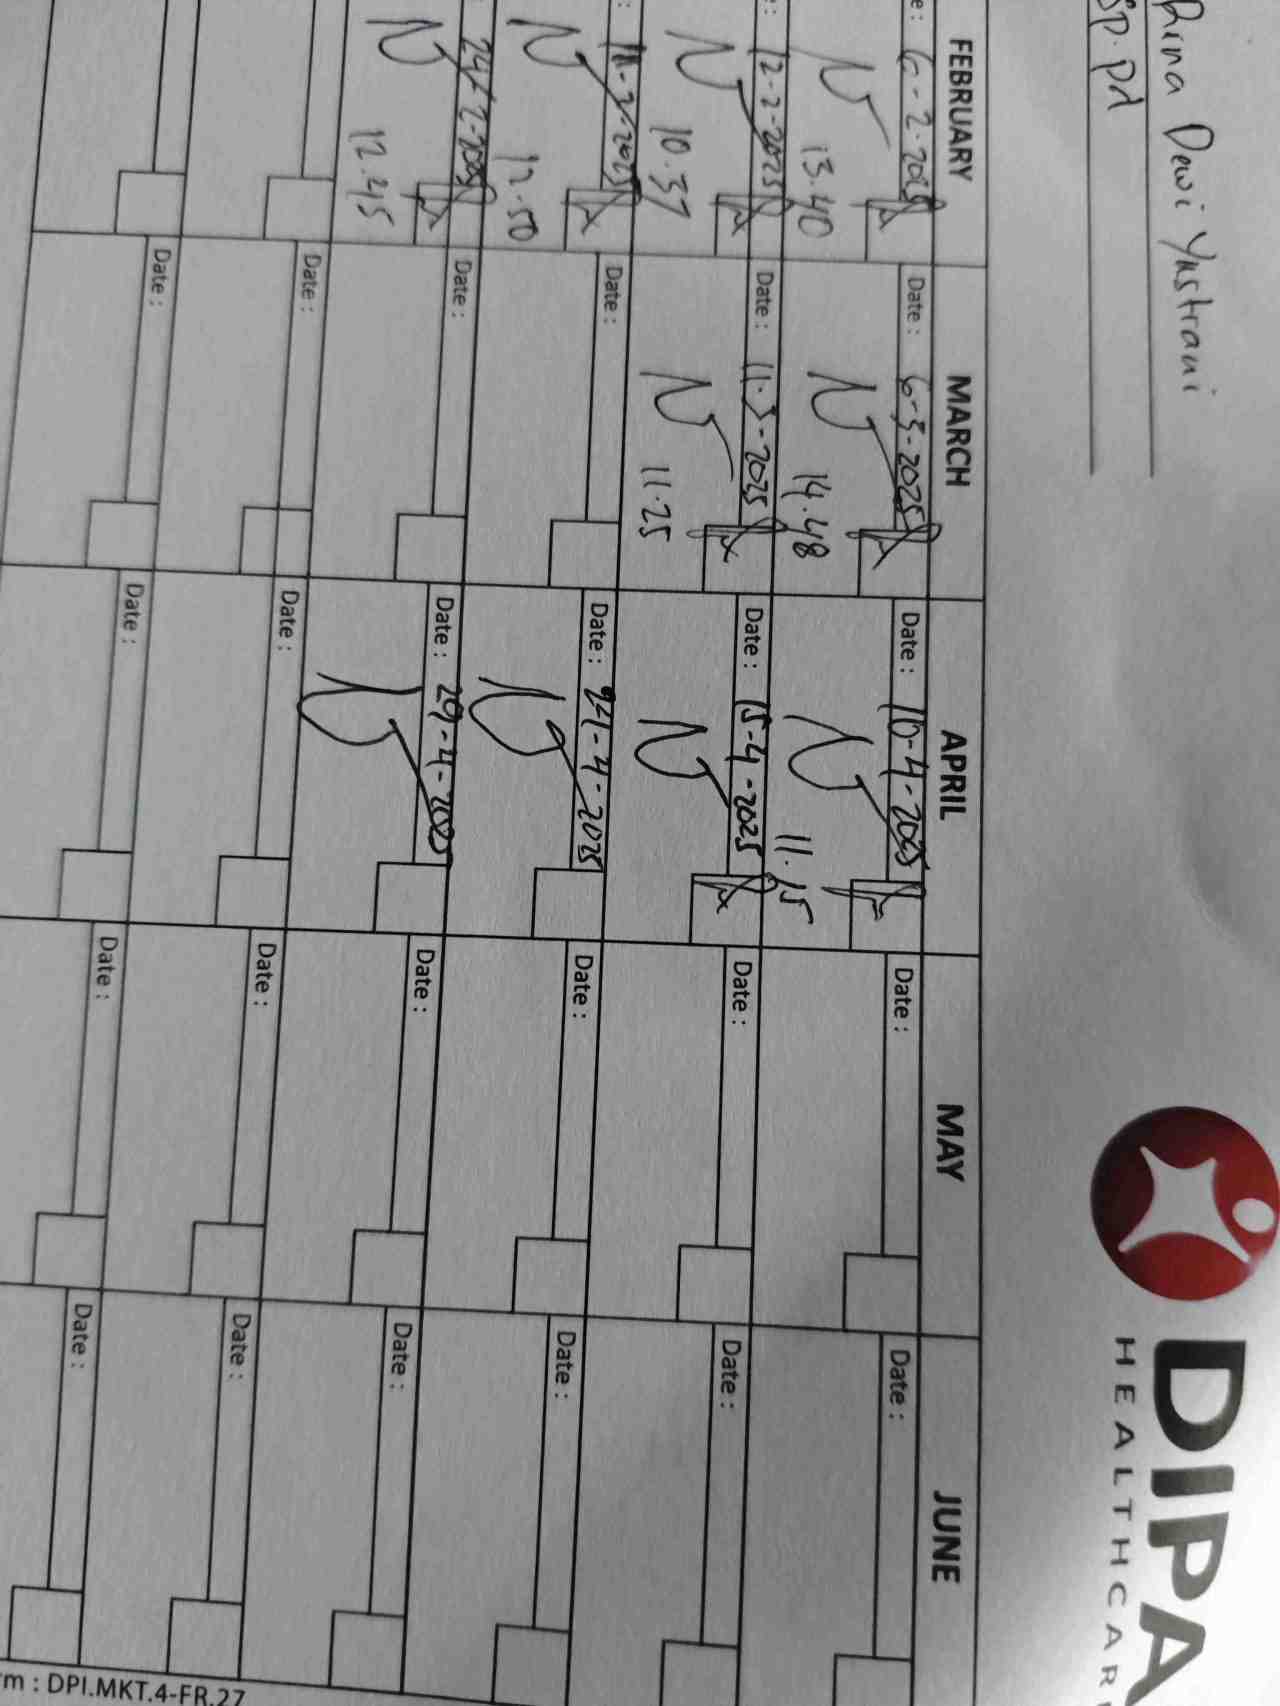 Rina Dewi Yustrani
Sp.pd
DIPA
HEALTHCAR
FEBRUARY MARCH APRIL MAY JUNE
e: 6-2-2025 Date: 6-3-2025 Date: 10-4-2025 Date: Date:
13.40 14.48 11.15
e: 12-2-2025 Date: 11-3-2025 Date: 15-4-2025 Date: Date:
10.37 11.25
Date: Date: 24-4-2025 Date: Date:
12.50
24-2-2025 Date: Date: 29-4-2025 Date: Date:
12.45
Date: Date: Date: Date:
Date: Date: Date: Date:
rm : DPI.MKT.4-FR.27